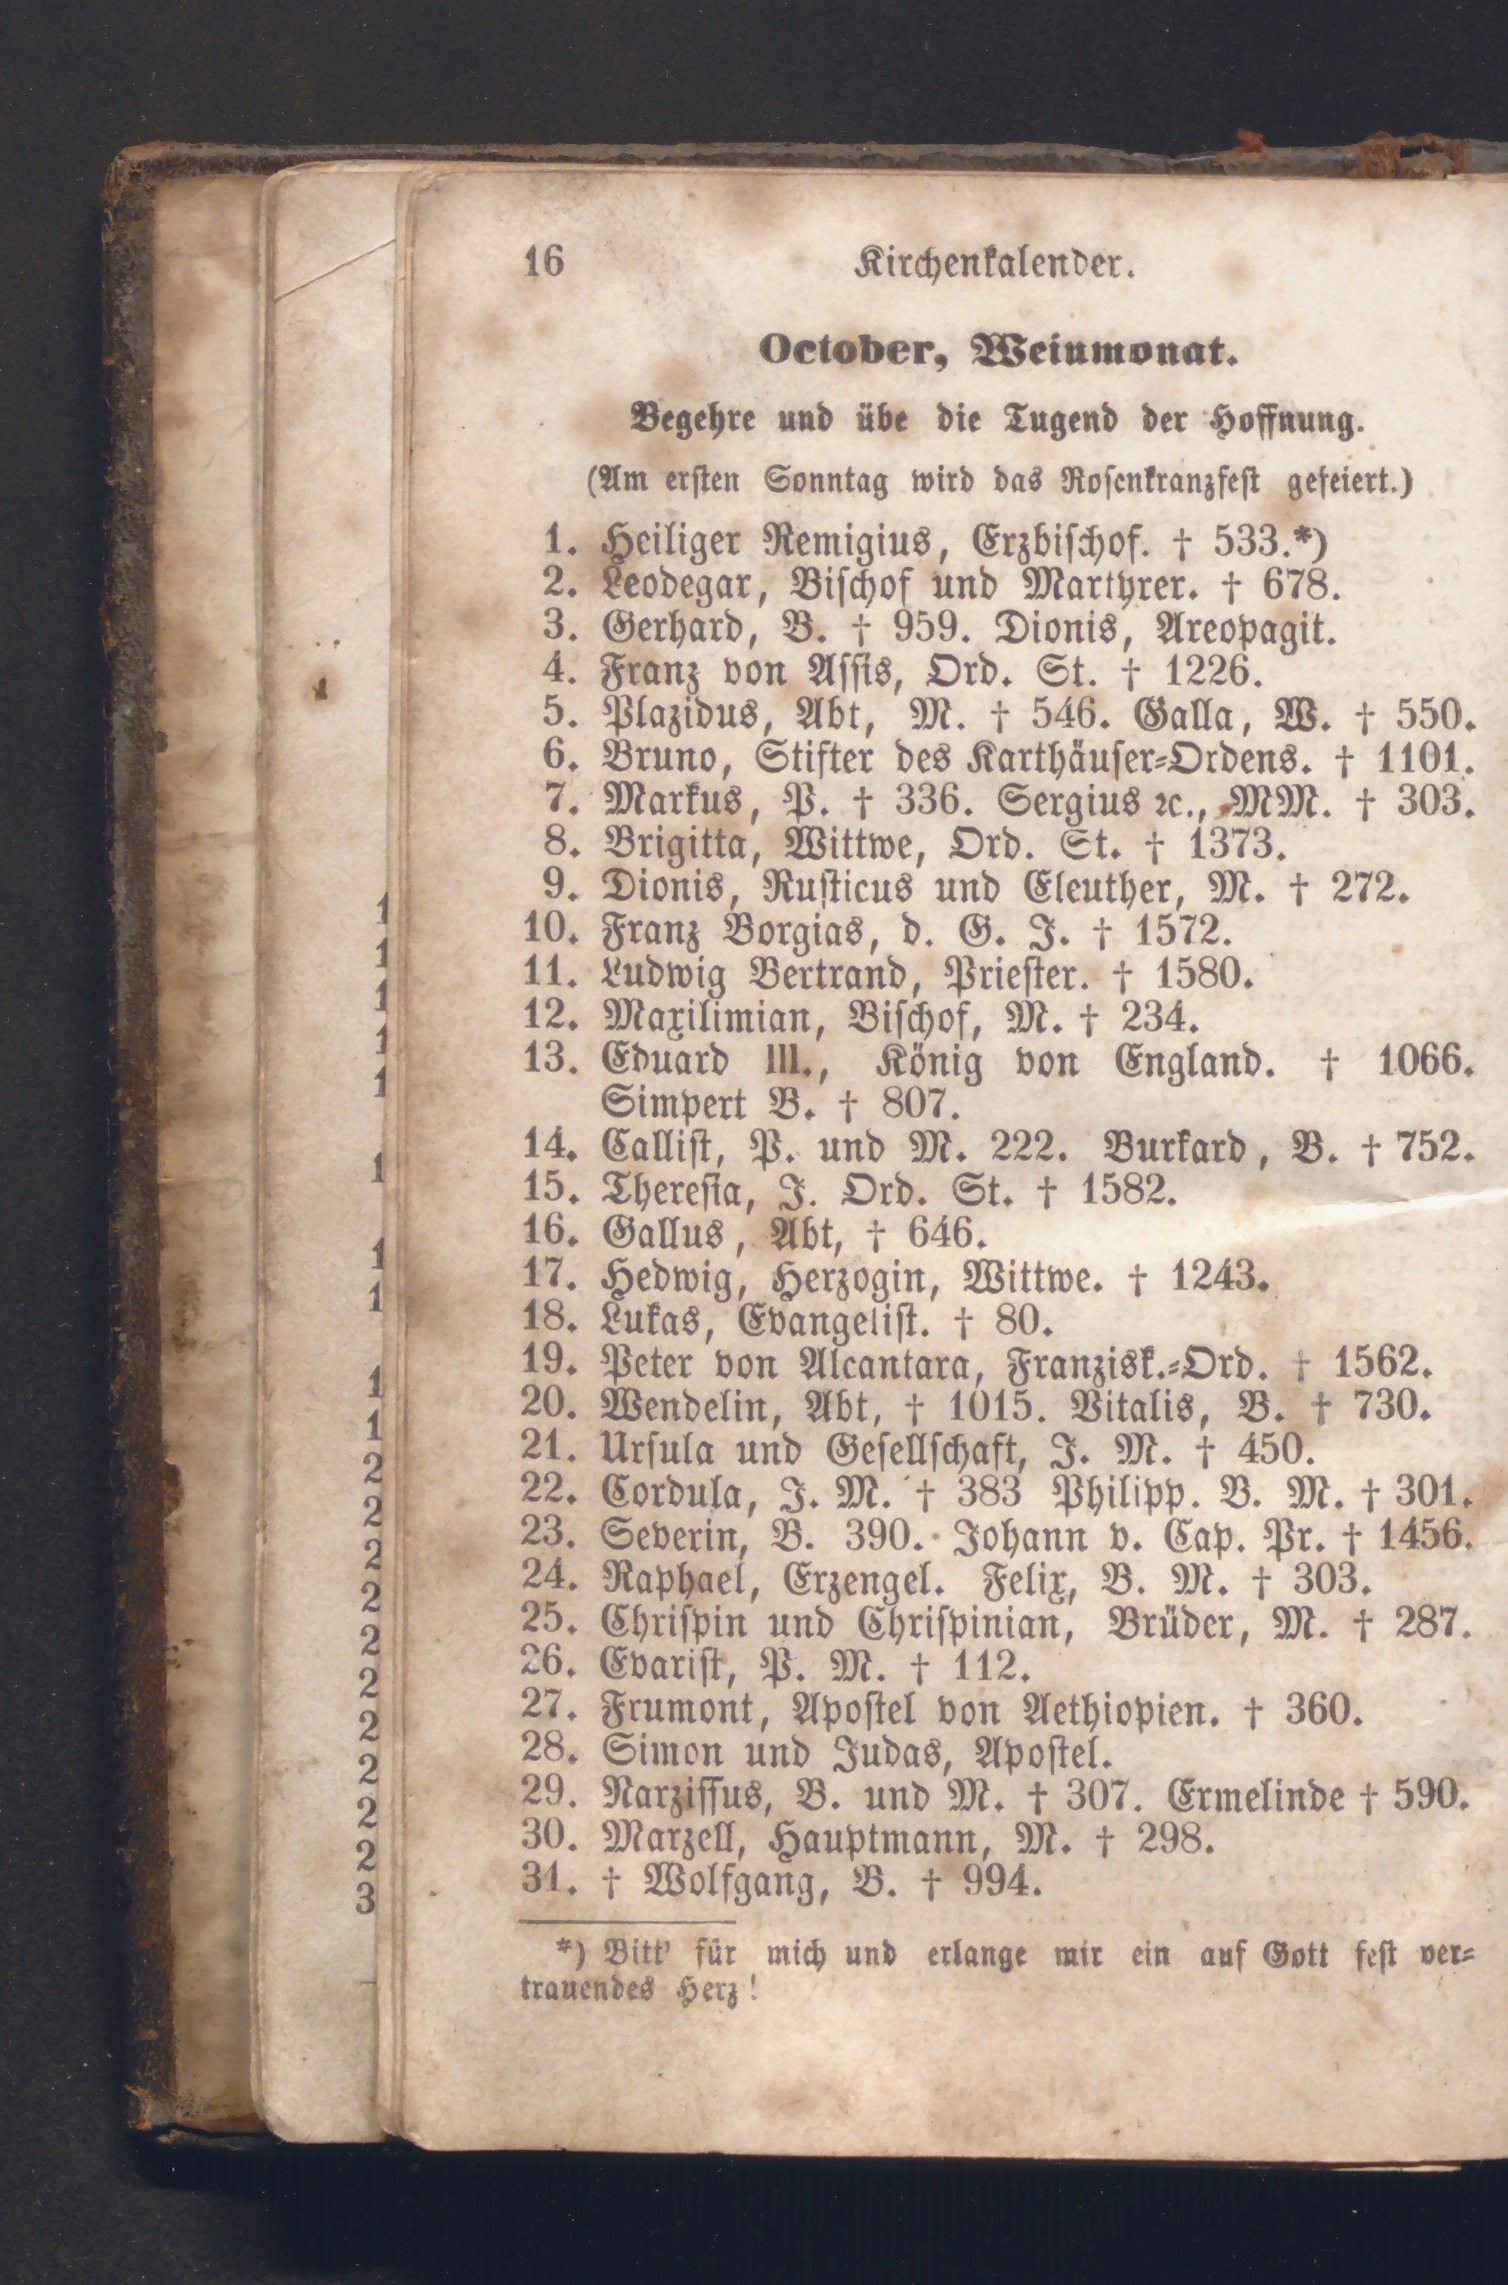 16 Kirchenkalender.
October, Weinmonat.
Begehre und übe die Tugend der Hoffnung.
(Am ersten Sonntag wird das Rosenkranzfest gefeiert.)
1. Heiliger Remigius, Erzbischof. † 533.*)
2. Leodegar, Bischof und Martyrer. † 678.
3. Gerhard, B. † 959. Dionis, Areopagit.
4. Franz von Assis, Ord. St. † 1226.
5. Plazidus, Abt, M. † 546. Galla, W. † 550.
6. Bruno, Stifter des Karthäuser-Ordens. † 1101.
7. Markus, P. † 336. Sergius ꝛc., MM. † 303.
8. Brigitta, Wittwe, Ord. St. † 1373.
9. Dionis, Rusticus und Eleuther, M. † 272.
10. Franz Borgias, d. G. J. † 1572.
11. Ludwig Bertrand, Priester. † 1580.
12. Maxilimian, Bischof, M. † 234.
13. Eduard III., König von England. † 1066.
Simpert B. † 807.
14. Callist, P. und M. 222. Burkard, B. † 752.
15. Theresia, J. Ord. St. † 1582.
16. Gallus, Abt, † 646.
17. Hedwig, Herzogin, Wittwe. † 1243.
18. Lukas, Evangelist. † 80.
19. Peter von Alcantara, Franzisk.-Ord. † 1562.
20. Wendelin, Abt, † 1015. Vitalis, B. † 730.
21. Ursula und Gesellschaft, J. M. † 450.
22. Cordula, J. M. † 383 Philipp. B. M. † 301.
23. Severin, B. 390. Johann v. Cap. Pr. † 1456.
24. Raphael, Erzengel. Felix, B. M. † 303.
25. Chrispin und Chrispinian, Brüder, M. † 287.
26. Evarist, P. M. † 112.
27. Frumont, Apostel von Aethiopien. † 360.
28. Simon und Judas, Apostel.
29. Narzissus, B. und M. † 307. Ermelinde † 590.
30. Marzell, Hauptmann, M. † 298.
31. † Wolfgang, B. † 994.
*) Bitt' für mich und erlange mir ein auf Gott fest ver-
trauendes Herz!